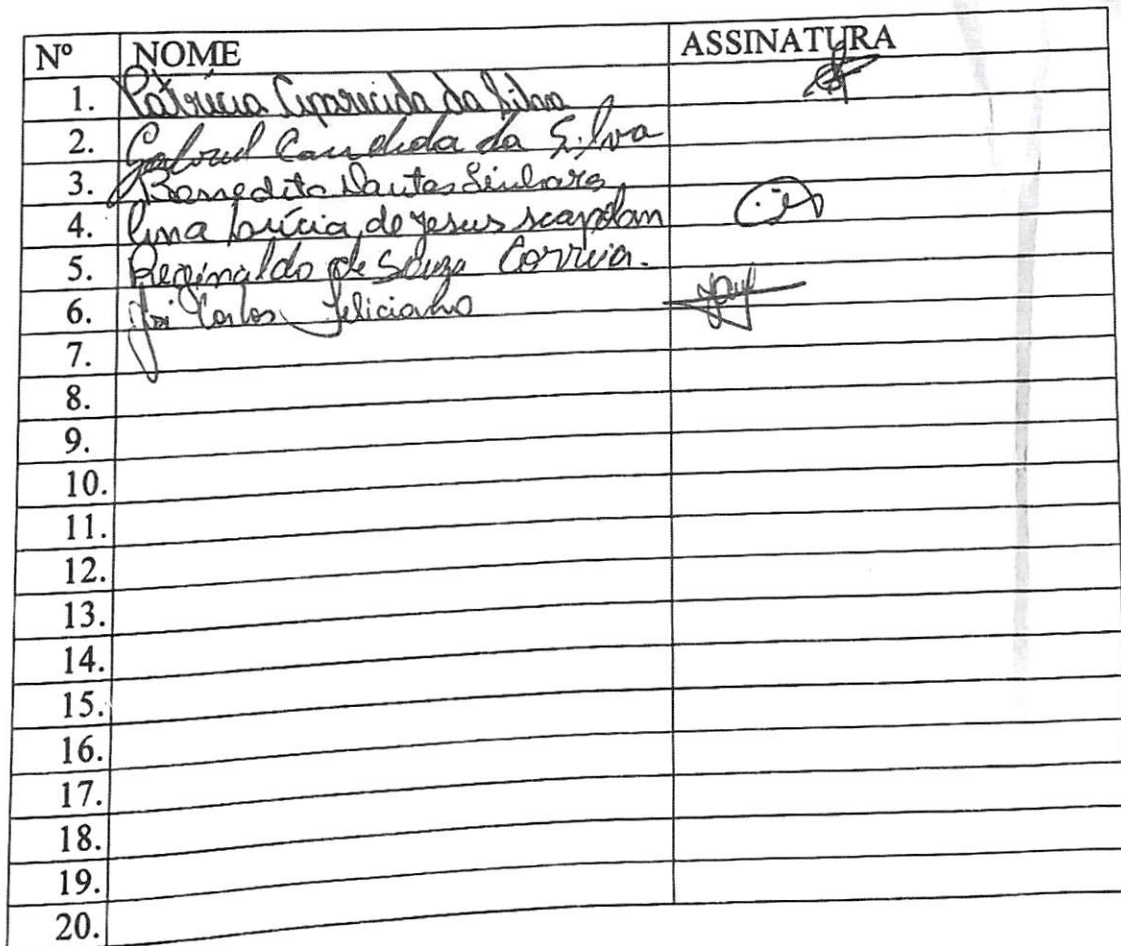 Nº NOME ASSINATURA
1. Patrícia Aparecida da Silva
2. Gabriel Candido da Silva
3. Benedito Dantas
4. Ana Lúcia de Jesus scapolan
5. Reginaldo de Souza Correia.
6. José Carlos Feliciano
7.
8.
9.
10.
11.
12.
13.
14.
15.
16.
17.
18.
19.
20.